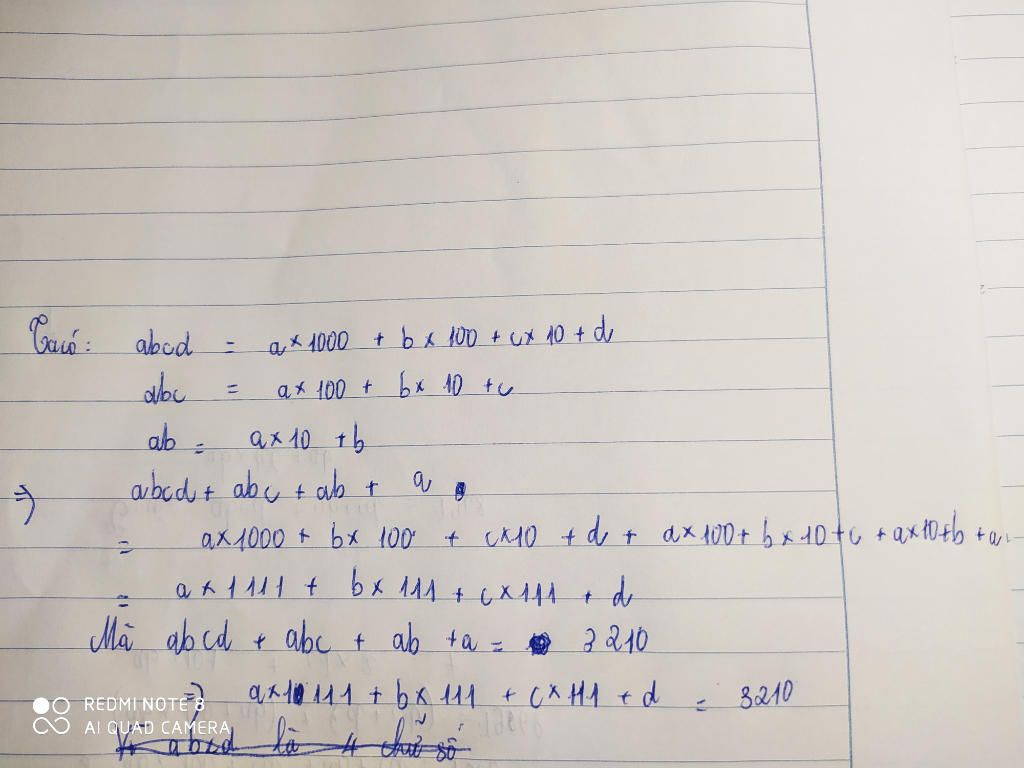 Ta có: abcd = a×1000 + b×100 + c×10 + d
abc = a×100 + b×10 + c
ab = a×10 + b
⇒ abcd + abc + ab + a
= a×1000 + b×100 + c×10 + d + a×100 + b×10 + c + a×10 + b + a
= a×1111 + b×111 + c×111 + d
Mà abcd + abc + ab + a = 3210
⇒ a×1111 + b×111 + c×111 + d = 3210
Vì abcd là 4 chữ số
REDMI NOTE 8
AI QUAD CAMERA